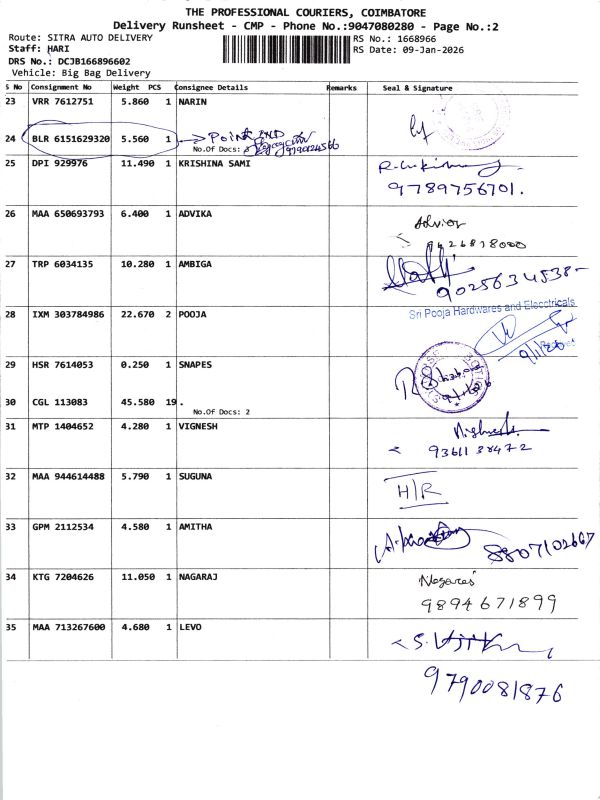 THE PROFESSIONAL COURIERS, COIMBATORE
Delivery Runsheet - CMP - Phone No.:9047080280 - Page No.:2
Route: SITRA AUTO DELIVERY
RS No.: 1668966
Staff: HARI
RS Date: 09-Jan-2026
DRS No.: DCJB166896602
Vehicle: Big Bag Delivery
S No Consignment No Weight PCS Consignee Details Remarks Seal & Signature
23 VRR 7612751 5.860 1 NARIN
24 BLR 6151629320 5.560 1 Point IND
No.Of Docs: 3
25 DPI 929976 11.490 1 KRISHINA SAMI
9789756701.
26 MAA 650693793 6.400 1 ADVIKA
9426818000
27 TRP 6034135 10.280 1 AMBIGA
9025634538-
28 IXM 303784986 22.670 2 POOJA
Sri Pooja Hardwares and Elecctricals
9/1/26
29 HSR 7614053 0.250 1 SNAPES
30 CGL 113083 45.580 19 .
No.Of Docs: 2
31 MTP 1404652 4.280 1 VIGNESH
9361138472
32 MAA 944614488 5.790 1 SUGUNA
H/R
33 GPM 2112534 4.580 1 AMITHA
8807102667
34 KTG 7204626 11.050 1 NAGARAJ
9894671899
35 MAA 713267600 4.680 1 LEVO
9790081876